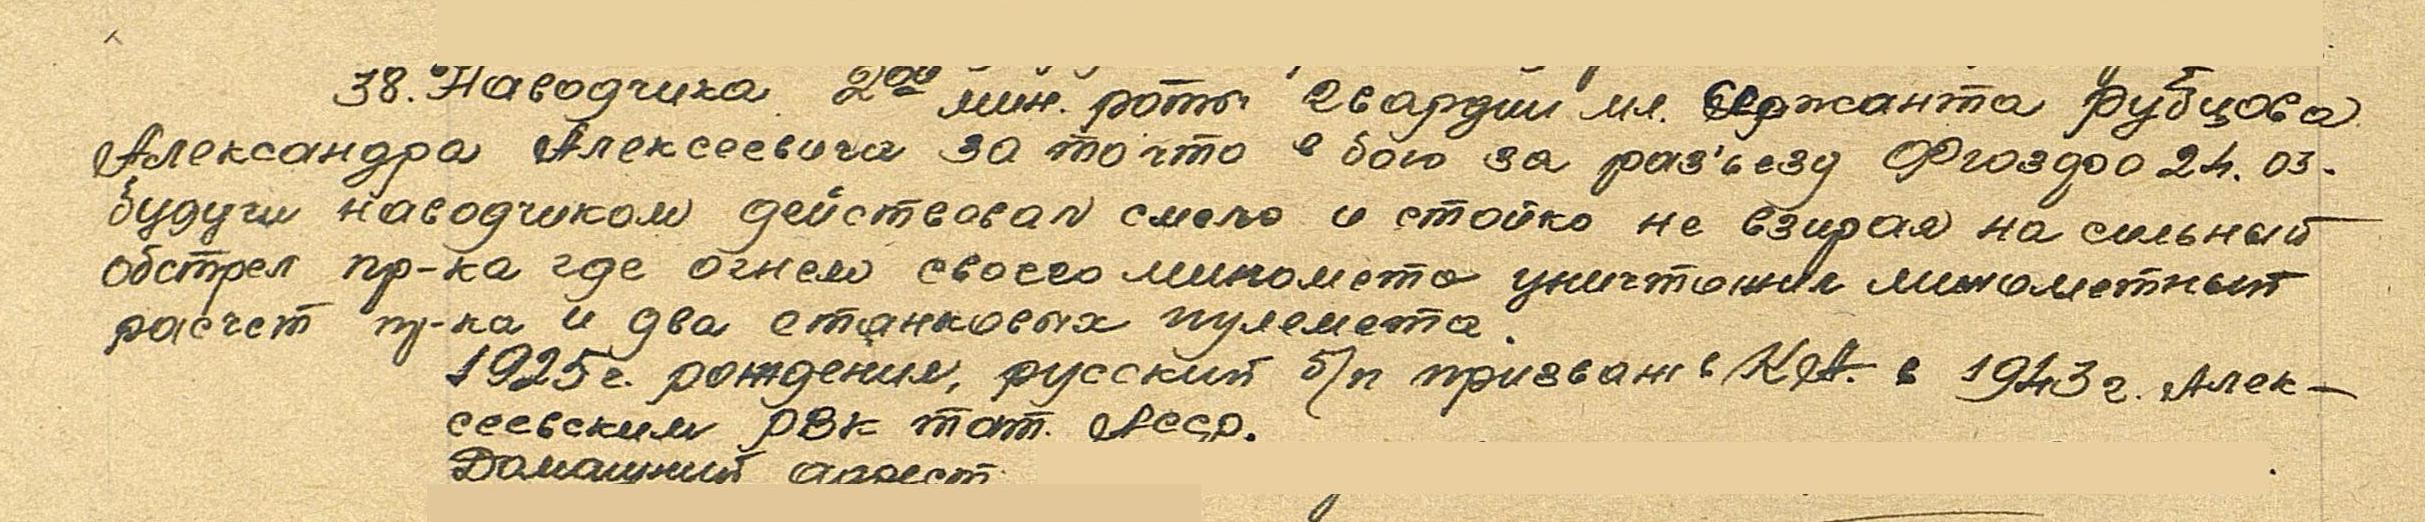 38. Наводчика 2ой мин. роты гвардии мл. сержанта Рубцова
Александра Алексеевича за то что в бою за раз'ъезд 24.03.
будучи наводчиком действовал смело и стойко не взирая на сильный
обстрел пр-ка где огнем своего миномета уничтожил минометный
расчет пр-ка и два станковых пулемета.
1925 г. рождения, русский б/п призван в КА. в 1943 г. Алек-
сеевским РВК тат. Асср.
Домашний адрест